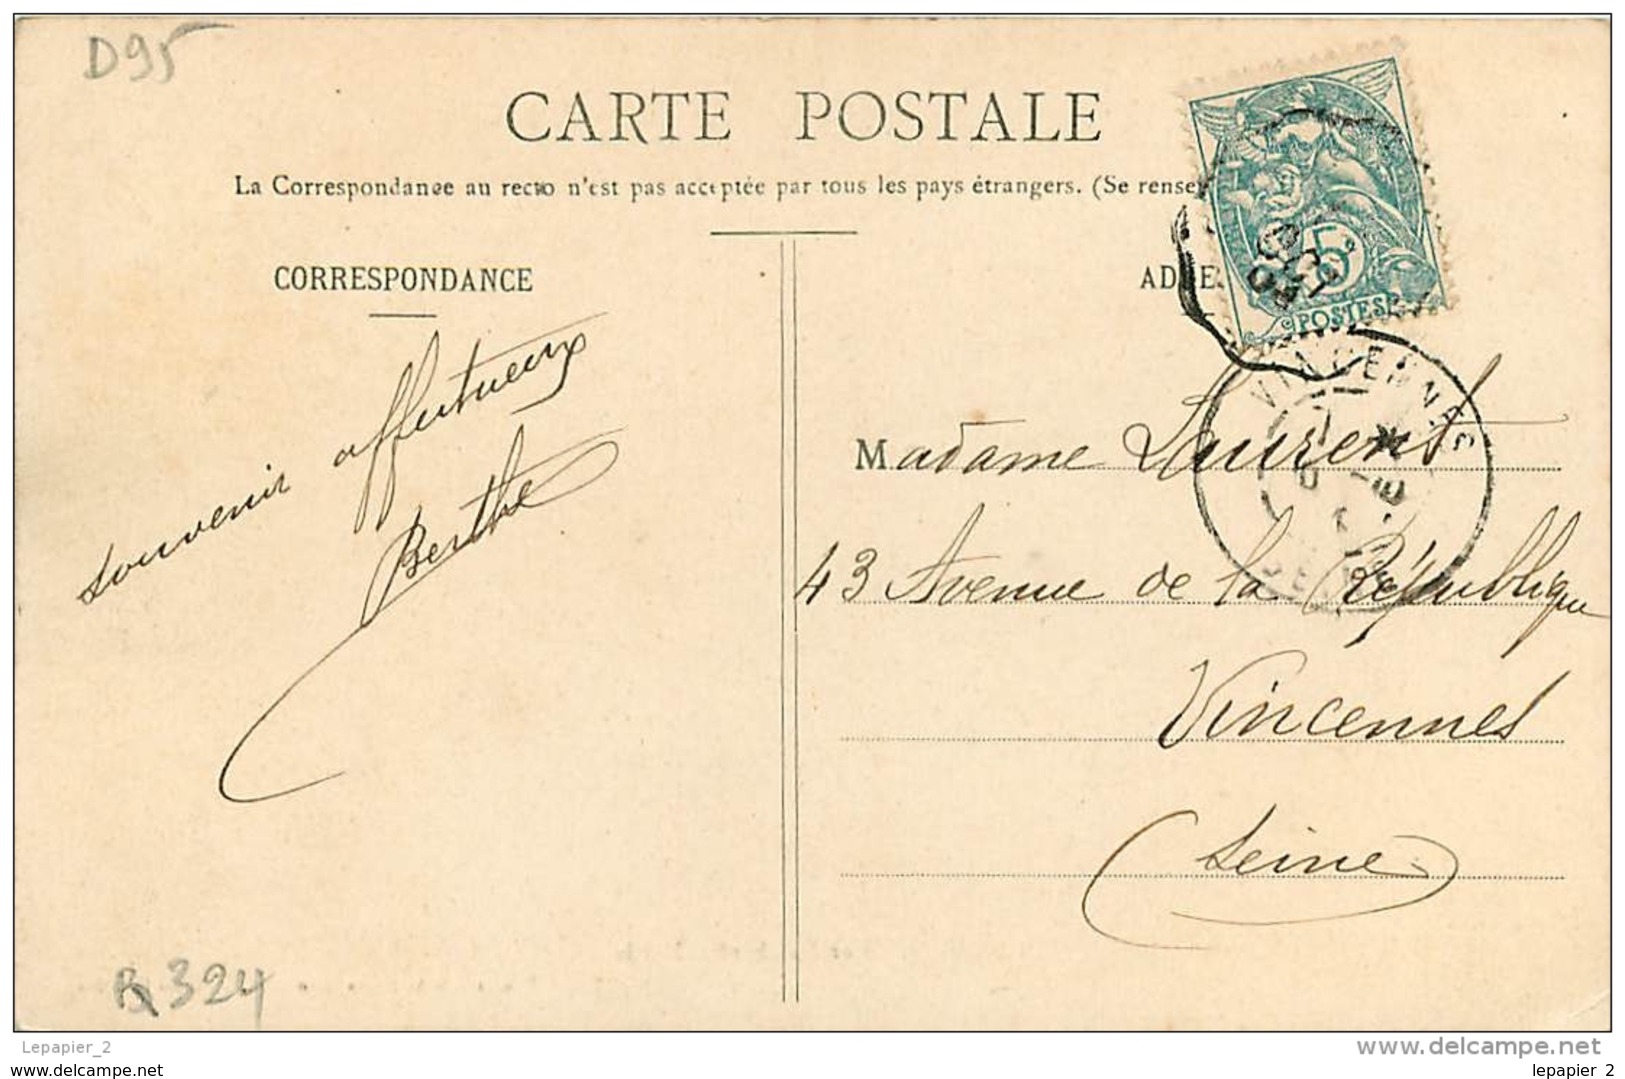 D95
CARTE POSTALE
La Correspondance au recto n'est pas acceptée par tous les pays étrangers. (Se rense
CORRESPONDANCE
ADRE
5c
POSTES
OCT
VINCENNES
souvenir affectueux
Berthe
Madame Laurent
43 Avenue de la République
Vincennes
(Seine)
324
Lepapier_2
www.delcampe.net
www.delcampe.net
lepapier_2